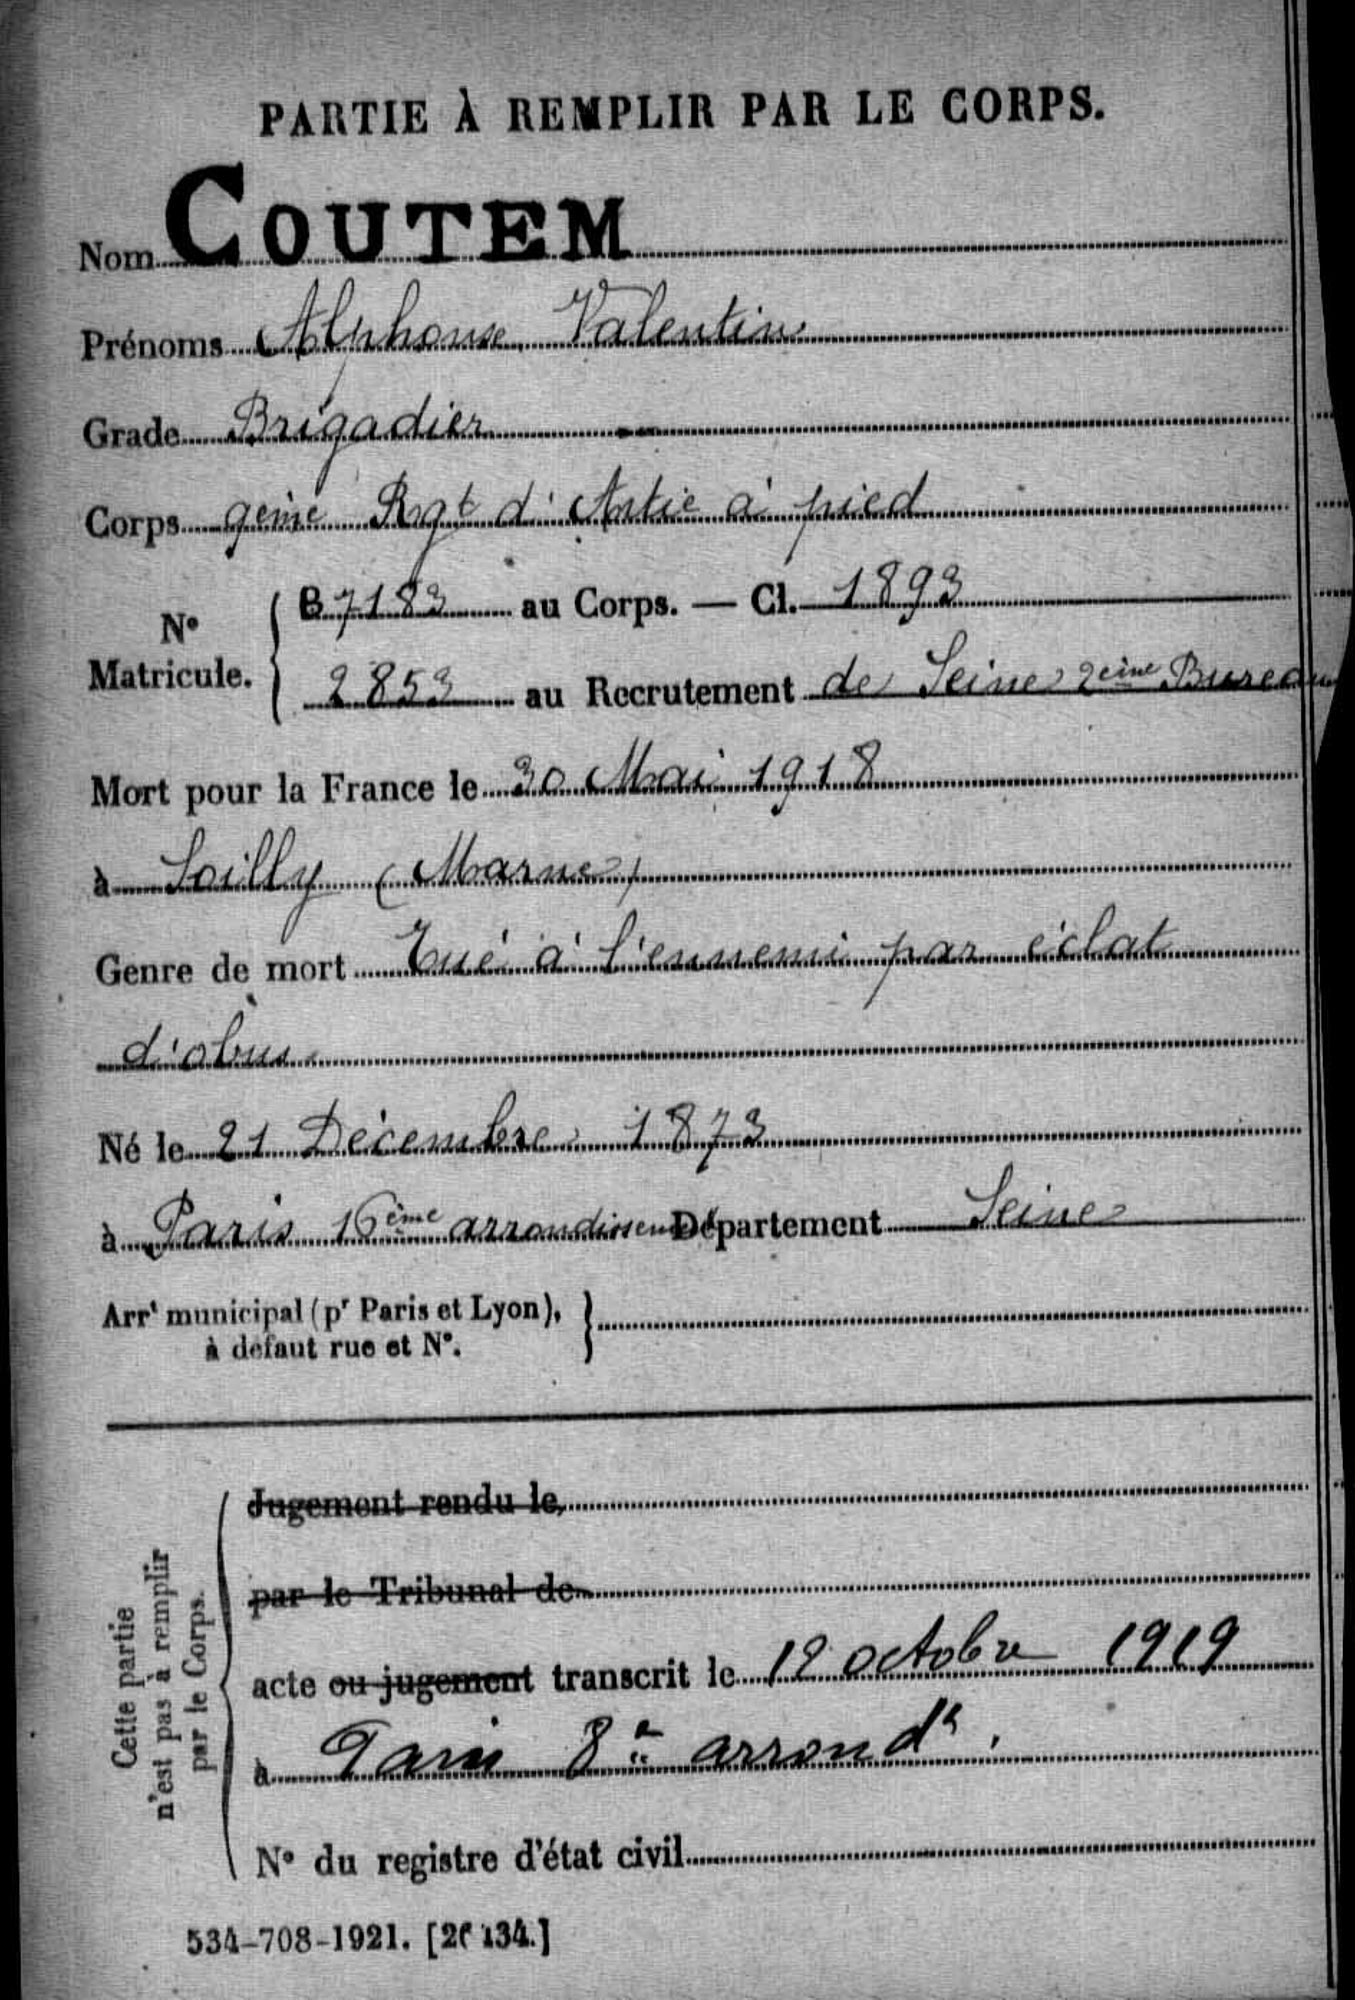 PARTIE À REMPLIR PAR LE CORPS.
Nom COUTEM
Prénoms Alphonse Valentin
Grade Brigadier
Corps 9ème Rgt d'Artie à pied
N° Matricule. B 7183 au Corps. — Cl. 1893
2853 au Recrutement de Seine 2eime Bureau
Mort pour la France le 30 Mai 1918
à Soilly (Marne)
Genre de mort Tué à l'ennemi par éclat
d'obus
Né le 21 Décembre 1873
à Paris 16ème arrondissement Département Seine
Arrt municipal (pr Paris et Lyon),
à défaut rue et N°.
Cette partie
n'est pas à remplir
par le Corps.
Jugement rendu le
par le Tribunal de
acte ou jugement transcrit le 12 octobre 1919
à Paris 8e arrondt.
N° du registre d'état civil
534-708-1921. [26134.]